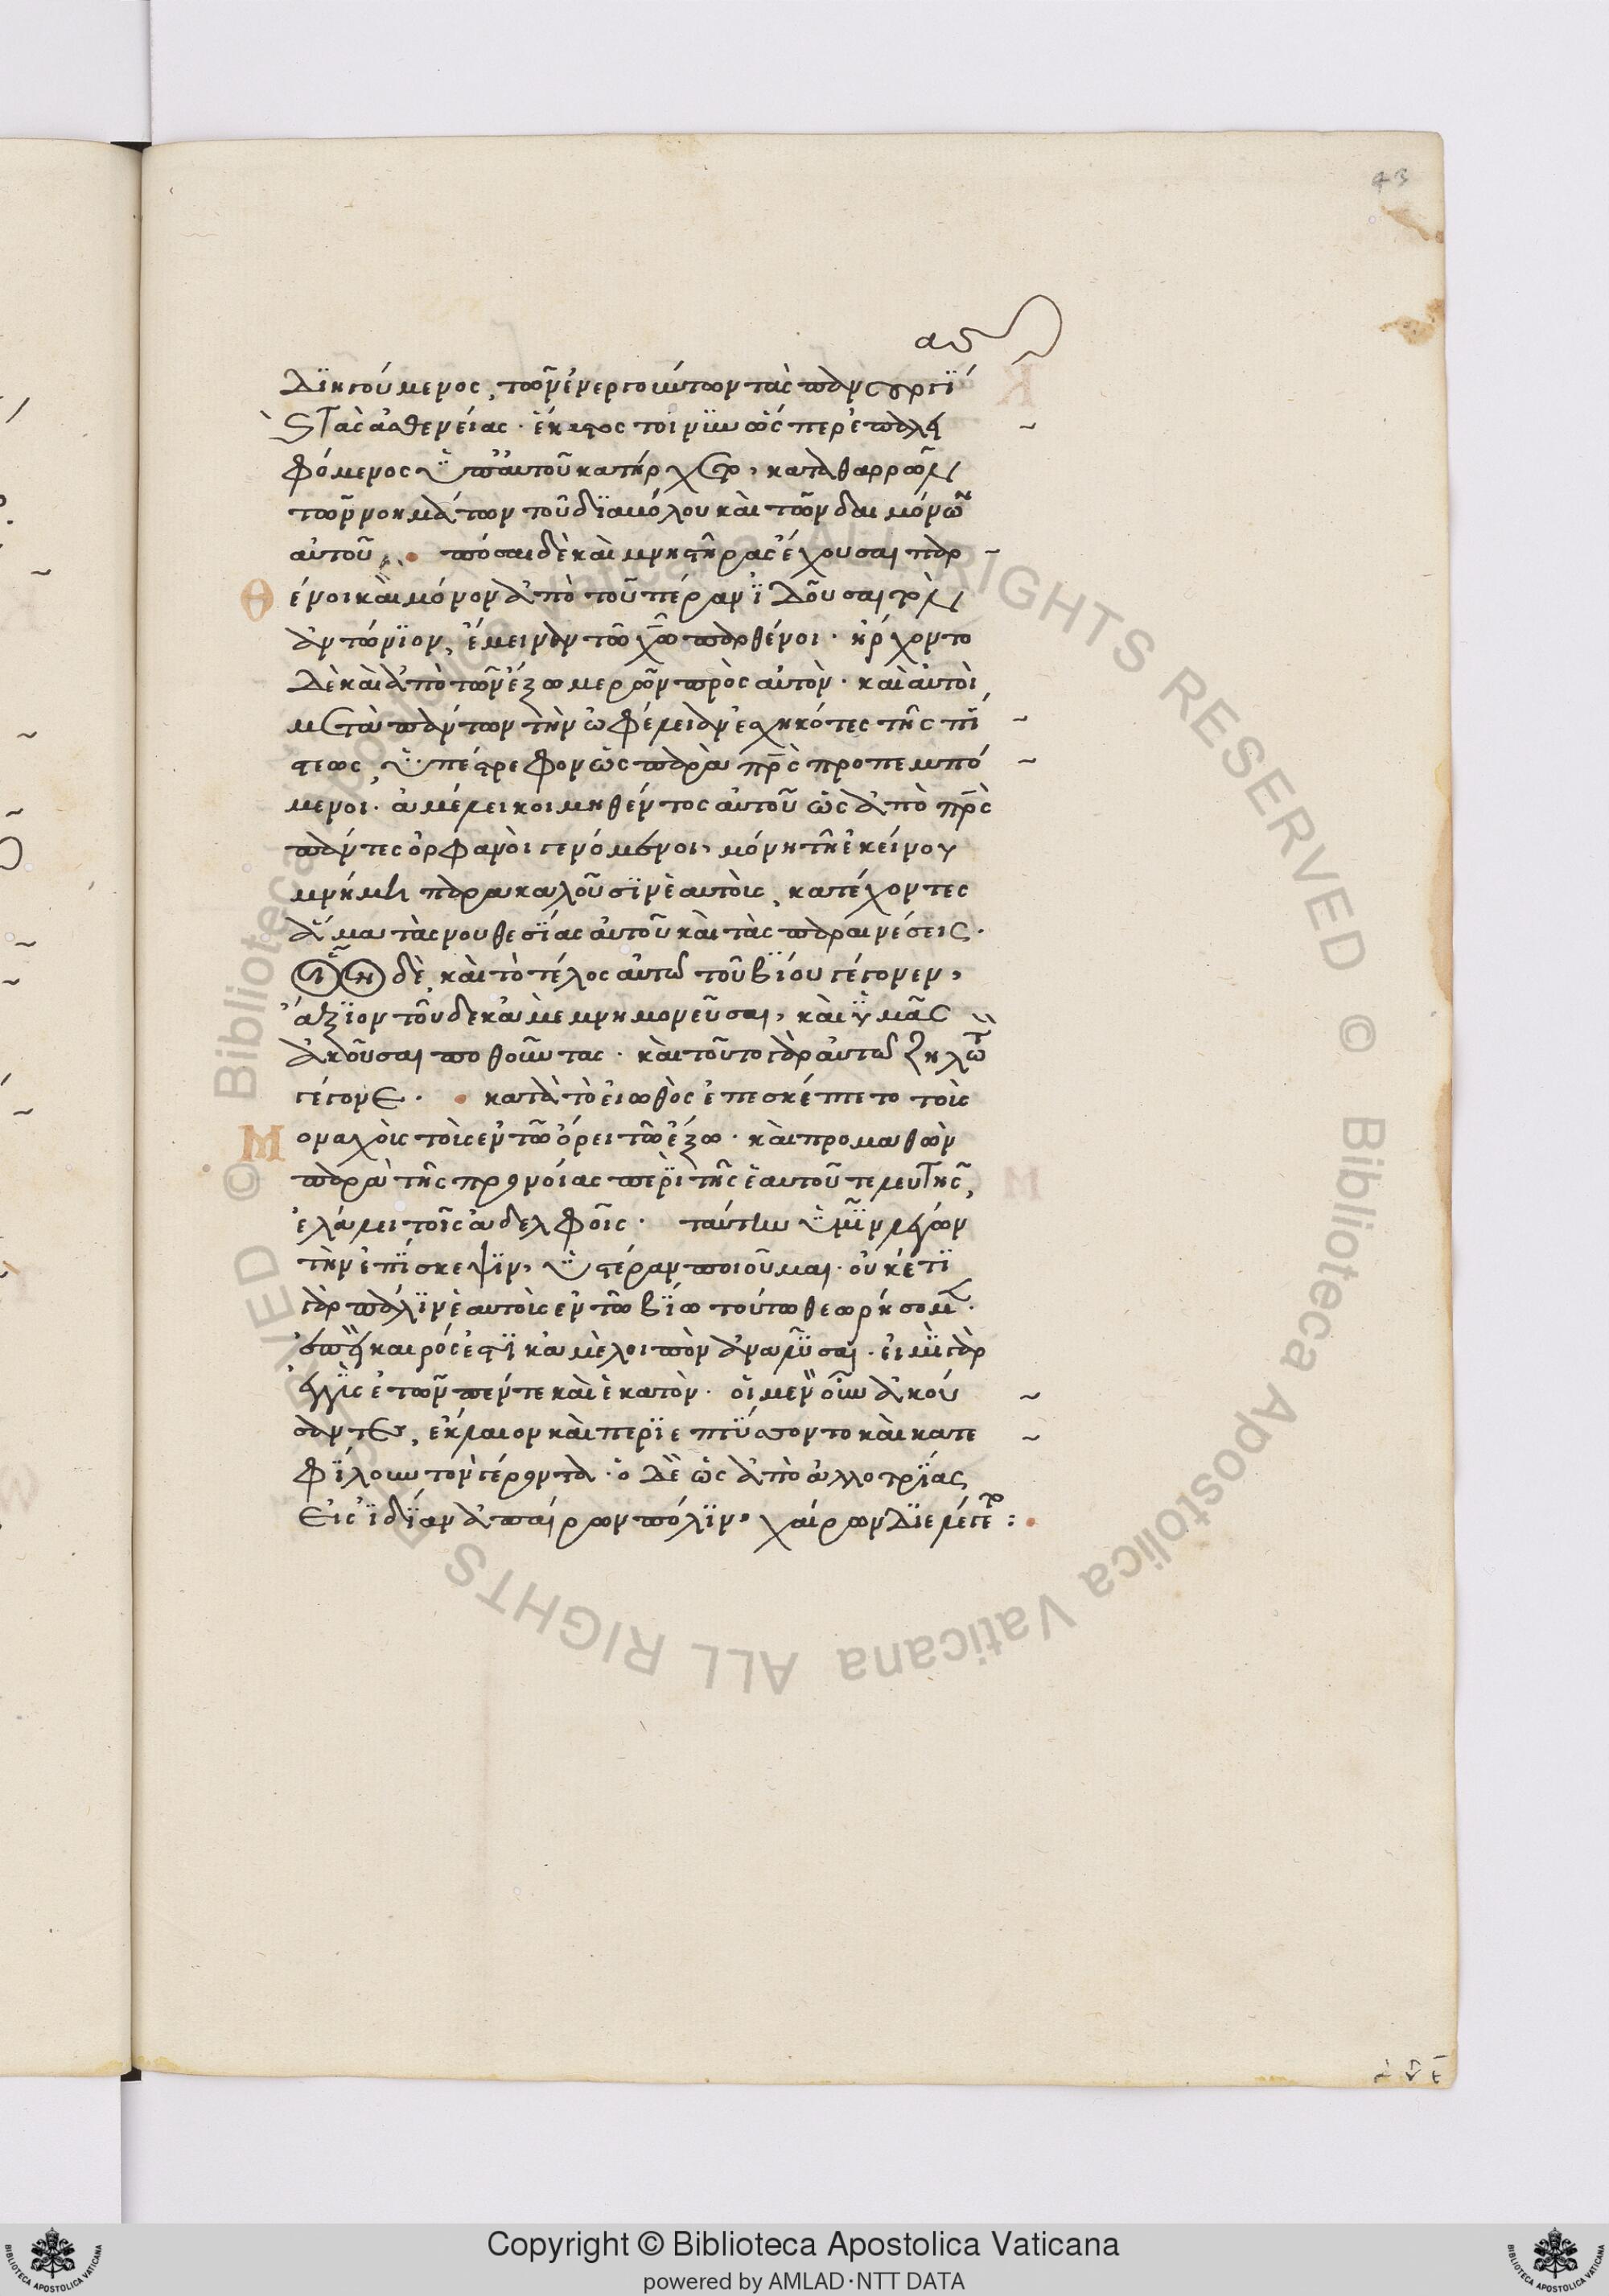 43
ας
διηγούμενος, τῶν ἐνεργούντων τὰς πανουργϊ
ϗ τὰς ἀσθενείας · ἕκαστος τοιγοῦν ὥσπερ ἐπαλει
φόμενος ὑπ' αὐτοῦ κατήρχετο, καταθαρρῶν
τῶν νοημάτων τοῦ διαβόλου καὶ τῶν δαιμόνων
αὐτοῦ · πόσαι δὲ καὶ μνηστῆρας ἔχουσαι παρ
Θένοι καὶ μόνον ἀπὸ τοῦ πέραν ἰδοῦσαι τὸν
ἀντώνιον, ἔμειναν τῶ χῶ παρθένοι · ἤρχοντο
δὲ καὶ ἀπὸ τῶν ἔξω μερῶν πρὸς αὐτὸν · καὶ αὐτοὶ
μετὰ πάντων τὴν ὠφέλειαν ἐσχηκότες τῆς πί
στεως, ὑπέστρεφον ὡς παρὰ πρς προπεμπό
μενοι · ἀμέλει κοιμηθέντος αὐτοῦ ὡς ἀπὸ πρς
πάντες ὀρφανοὶ γενόμενοι, μόνη τῆ ἐκείνου
μνήμη παρακαλοῦσιν ἑαυτοὺς, κατέχοντες
ἅμα τὰς νουθεσίας αὐτοῦ καὶ τὰς παραινέσεις ·
Οἷον δὲ, καὶ τὸ τέλος αὐτῶ τοῦ βίου γέγονεν,
ἄξιον τοῦδε κἀμὲ μνημονεῦσαι, καὶ ὑμᾶς
ἀκοῦσαι ποθοῦντας · καὶ τοῦτο γὰρ αὐτῶ ζηλωτ
γέγονε · κατὰ τὸ εἰωθὸς ἐπεσκέπτετο τοὺς
Μοναχοὺς τοὺς ἐν τῶ ὄρει τῶ ἔξω · καὶ προμαθὼν
παρὰ τῆς προνοίας περὶ τῆς ἑαυτοῦ τελευτῆς,
ἐλάλει τοῖς ἀδελφοῖς · ταύτην ὑμῖν λέγων
τὴν ἐπίσκεψιν, ὑστέραν ποιοῦμαι · οὐκέτι
γὰρ πάλιν ἑαυτοὺς ἐν τῶ βίω τούτω θεωρήσομεν ·
καιρός ἐστι κἀμὲ λοιπὸν ἀναλῦσαι · εἰμὶ γὰρ
ἐγγὺς ἐτῶν πέντε καὶ ἑκατὸν · οἱ μὲν οὖν ἀκού
σαντες, ἔκλαιον καὶ περιεπτύσσοντο καὶ κατε
φίλουν τὸν γέροντα · ὁ δὲ ὡς ἀπὸ ἀλλοτρίας
εἰς ἰδίαν ἀπαίρων πόλιν, χαίρων διελέγετο :